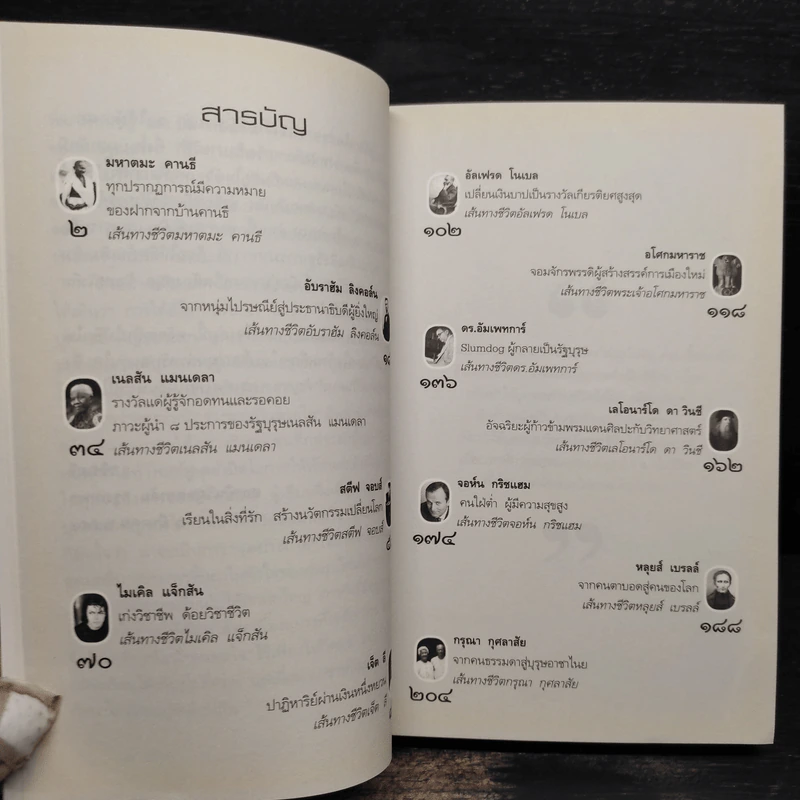 สารบัญ
มหาตมะ คานธี
ทุกปรากฏการณ์มีความหมาย
ของฝากจากบ้านคานธี
เส้นทางชีวิตมหาตมะ คานธี
๒
อับราฮัม ลิงคอล์น
จากหนุ่มไปรษณีย์สู่ประธานาธิบดีผู้ยิ่งใหญ่
เส้นทางชีวิตอับราฮัม ลิงคอล์น
เนลสัน แมนเดลา
รางวัลแด่ผู้รู้จักอดทนและรอคอย
ภาวะผู้นำ ๘ ประการของรัฐบุรุษเนลสัน แมนเดลา
เส้นทางชีวิตเนลสัน แมนเดลา
๓๔
สตีฟ จอบส์
เรียนในสิ่งที่รัก สร้างนวัตกรรมเปลี่ยนโลก
เส้นทางชีวิตสตีฟ จอบส์
ไมเคิล แจ็กสัน
เก่งวิชาชีพ ด้อยวิชาชีวิต
เส้นทางชีวิตไมเคิล แจ็กสัน
๗๐
เจ็ต ลี
ปาฏิหาริย์ผ่านเงินหนึ่งหยวน
เส้นทางชีวิตเจ็ต ลี
อัลเฟรด โนเบล
เปลี่ยนเงินบาปเป็นรางวัลเกียรติยศสูงสุด
เส้นทางชีวิตอัลเฟรด โนเบล
๑๐๒
อโศกมหาราช
จอมจักรพรรดิผู้สร้างสรรค์การเมืองใหม่
เส้นทางชีวิตพระเจ้าอโศกมหาราช
๑๑๘
ดร.อัมเพทการ์
Slumdog ผู้กลายเป็นรัฐบุรุษ
เส้นทางชีวิตดร.อัมเพทการ์
๑๓๖
เลโอนาร์โด ดา วินชี
อัจฉริยะผู้ก้าวข้ามพรมแดนศิลปะกับวิทยาศาสตร์
เส้นทางชีวิตเลโอนาร์โด ดา วินชี
๑๖๒
จอห์น กริชแฮม
คนใฝ่ต่ำ ผู้มีความสุขสูง
เส้นทางชีวิตจอห์น กริชแฮม
๑๗๔
หลุยส์ เบรลล์
จากคนตาบอดสู่คนของโลก
เส้นทางชีวิตหลุยส์ เบรลล์
๑๘๘
กรุณา กุศลาสัย
จากคนธรรมดาสู่บุรุษอาชาไนย
เส้นทางชีวิตกรุณา กุศลาสัย
๒๐๔